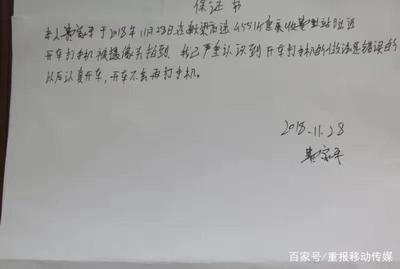 保证书
本人 于2018年11月28日在 高速455
开车打手机被摄像头拍到,我已严重认识到开车打手机的做法是错误的
以后认真开车,开车不会再打手机。
2018.11.28
百家号/重报移动传媒